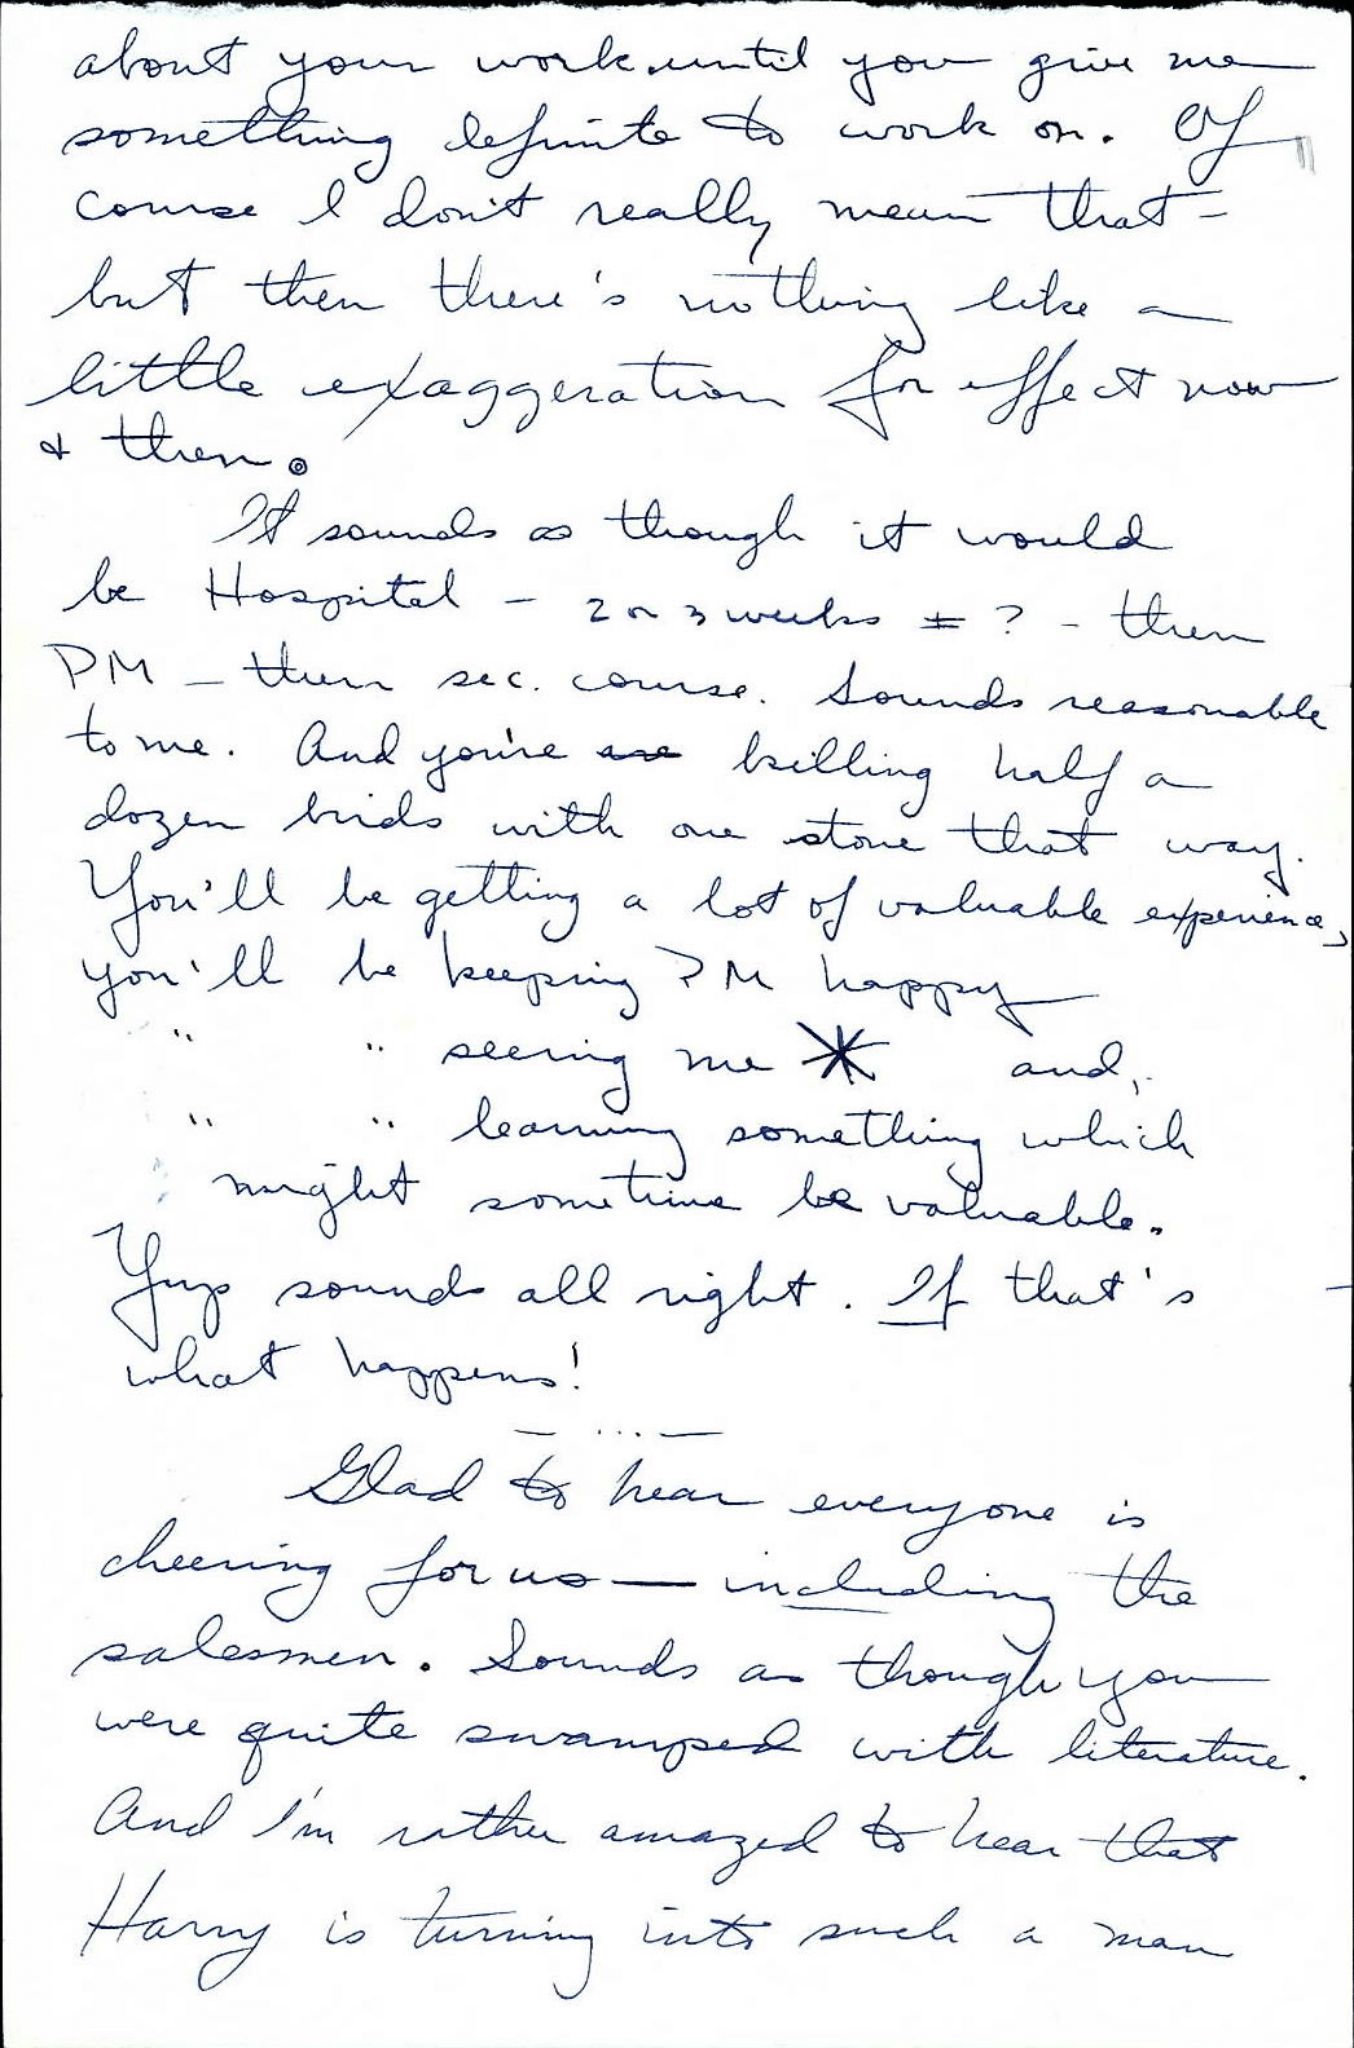 about your work until you give me
something definite to work on. Of
course I don't really mean that -
but then there's nothing like a
little exaggeration for effect now
& then.
It sounds as though it would
be Hospital - 2 or 3 weeks ± ? - then
PM - then sec. course. Sounds reasonable
to me. And you're are killing half a
dozen birds with one stone that way.
You'll be getting a lot of valuable experience,
you'll be keeping PM happy
" " seeing me * and,
" " learning something which
might sometime be valuable.
Yup sounds all right. If that's
what happens!
— ... —
Glad to hear everyone is
cheering for us — including the
salesmen. Sounds as though you
were quite swamped with literature.
And I'm rather amazed to hear that
Harry is turning into such a man